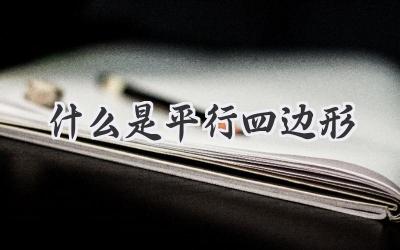 什么是平行四边形